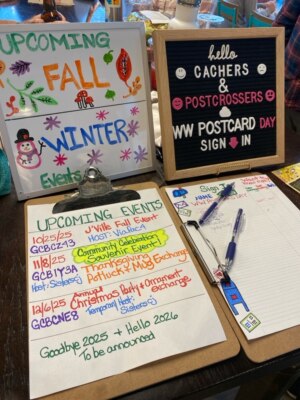 UPCOMING
FALL
&
WINTER
Events
hello
CACHERS
&
POSTCROSSERS
WW POSTCARD DAY
SIGN IN
UPCOMING EVENTS
10/25/25 J'Ville Fall Event
GCBCZ43 HOST:
Community Celebration
Souvenir Event!
11/8/25 Thanksgiving
GCB1Y3A Potluck & Mug Exchange
Host: Sisters-J
12/6/25 Annual
Christmas Party & Ornament
GCBCNE8 Temporary Host: exchange
Sisters-J
Goodbye 2025 & Hello 2026
To be announced
Sign In
NAME